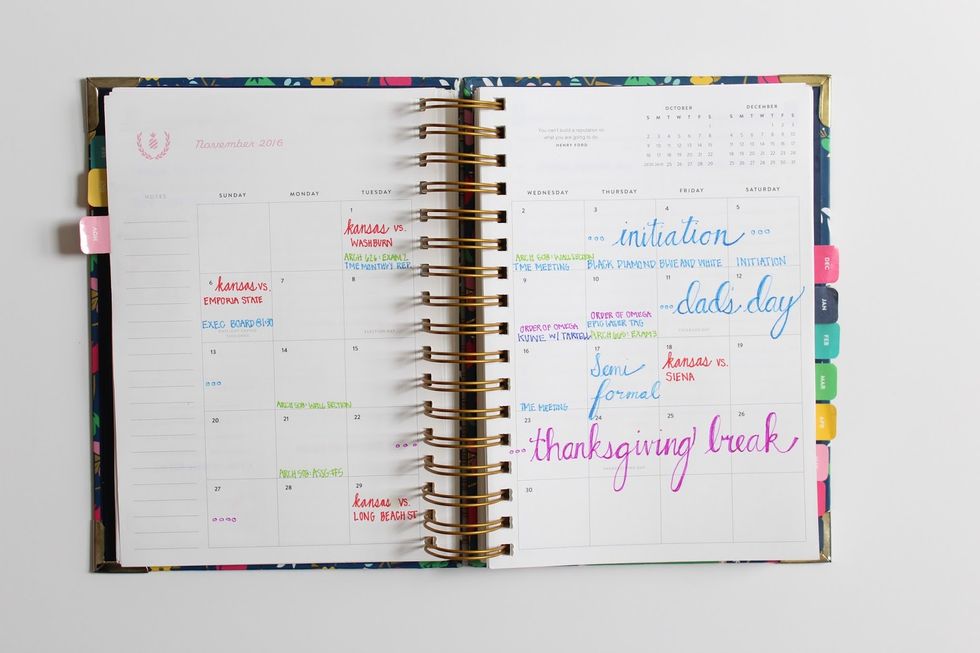 November 2016
You can't build a reputation on
what you are going to do.
HENRY FORD
OCTOBER
S M T W T F S
1
2 3 4 5 6 7 8
9 10 11 12 13 14 15
16 17 18 19 20 21 22
DECEMBER
S M T W T F S
1 2 3
4 5 6 7 8 9 10
11 12 13 14 15 16 17
18 19 20 21 22 23 24
25 26 27 28 29 30 31
NOTES
SUNDAY MONDAY TUESDAY WEDNESDAY THURSDAY FRIDAY SATURDAY
1
kansas vs.
WASHBURN
TME MONTHLY REP.
2
ARCH 608: WALL SECTION
TME MEETING
3 4 5
initiation
BLACK DIAMOND BLUE AND WHITE INITIATION
6
kansas vs.
EMPORIA STATE
EXEC BOARD
7
8
ELECTION DAY
9
ORDER OF OMEGA
10
ORDER OF OMEGA
11 12
dads day
VETERANS DAY
13
14
ARCH 608: WALL SECTION
15
16
TME MEETING
17
Semi
formal
18
kansas vs.
SIENA
19
20
21
22
23 24 25 26
thanksgiving break
27
28
29
kansas vs.
LONG BEACH ST
30
DEC
JAN
FEB
MAR
APR